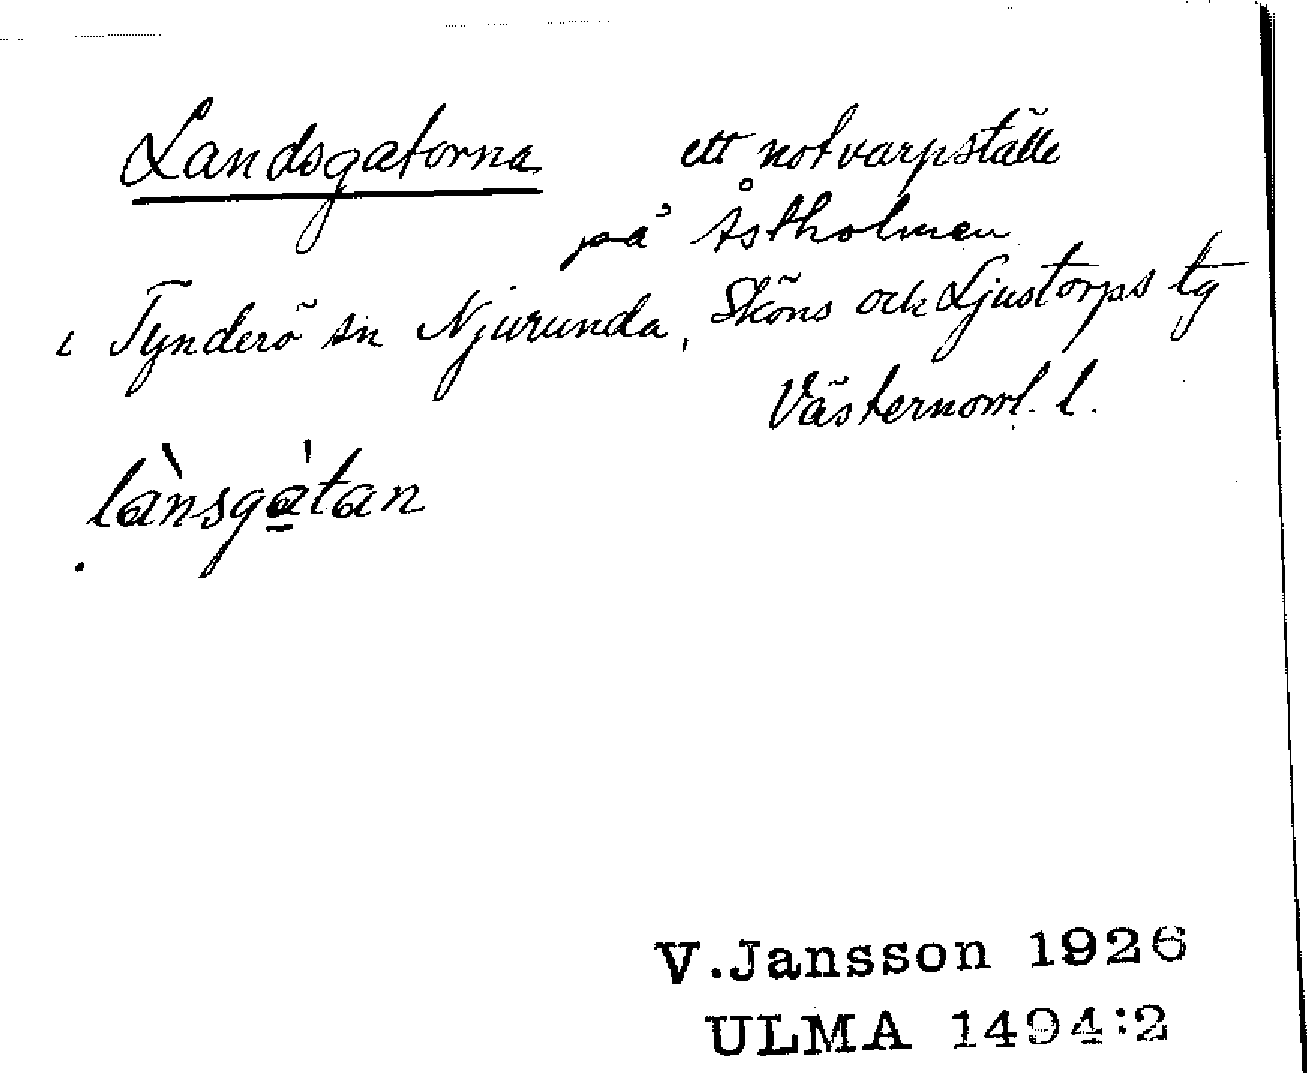 Landsgatorna ett notvarpställe
på Åstholmen
i Tynderö sn Njurunda, Sköns och Ljustorps tg
Västernorrl. l.
lànsgàtan
V.Jansson 1926
ULMA 1494:2